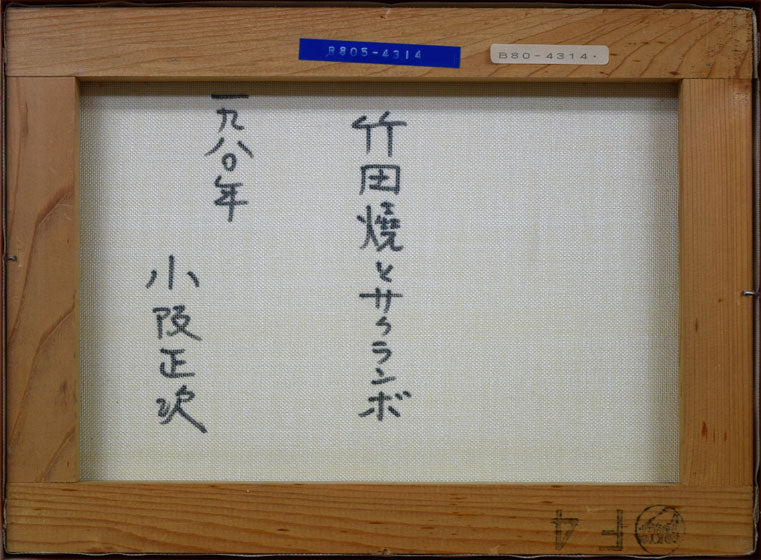 B805-4314
B80-4314.
竹田燒とサクランボ
一九八〇年
小阪正次
F 4